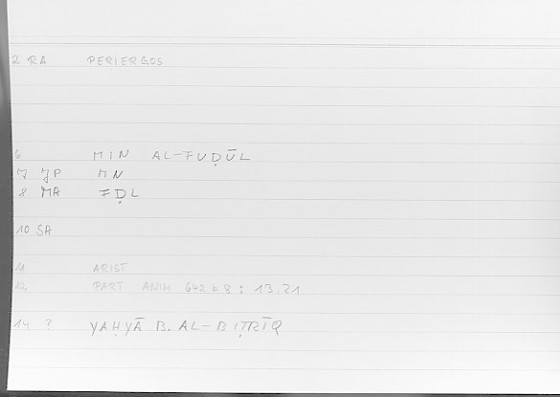 2 RA PERIERGOS
6 MIN AL-FUḌŪL
7 JP MN
8 MA FḌL
10 SA
11 ARIST
12 PART ANIM 642 b 8 : 13.21
14 ? YAḤYĀ B. AL-BIṬRĪQ